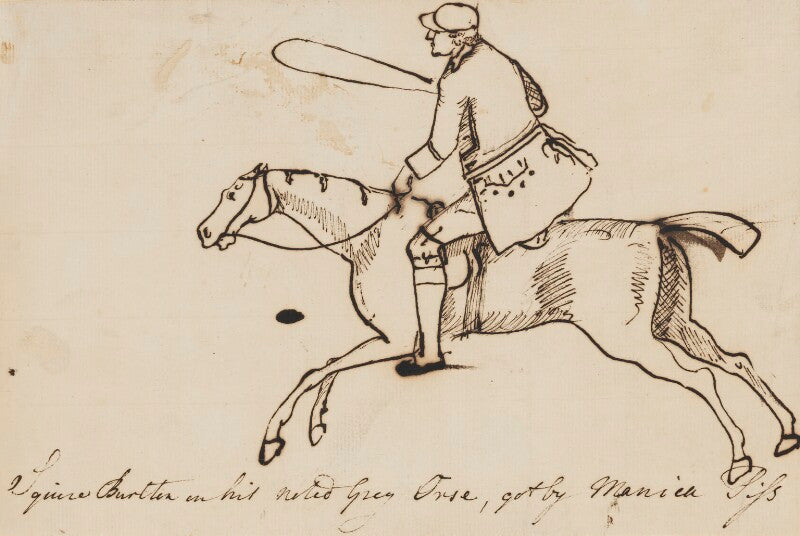 Squire Burlton on his noted Grey Orse, got by Manica Piſs